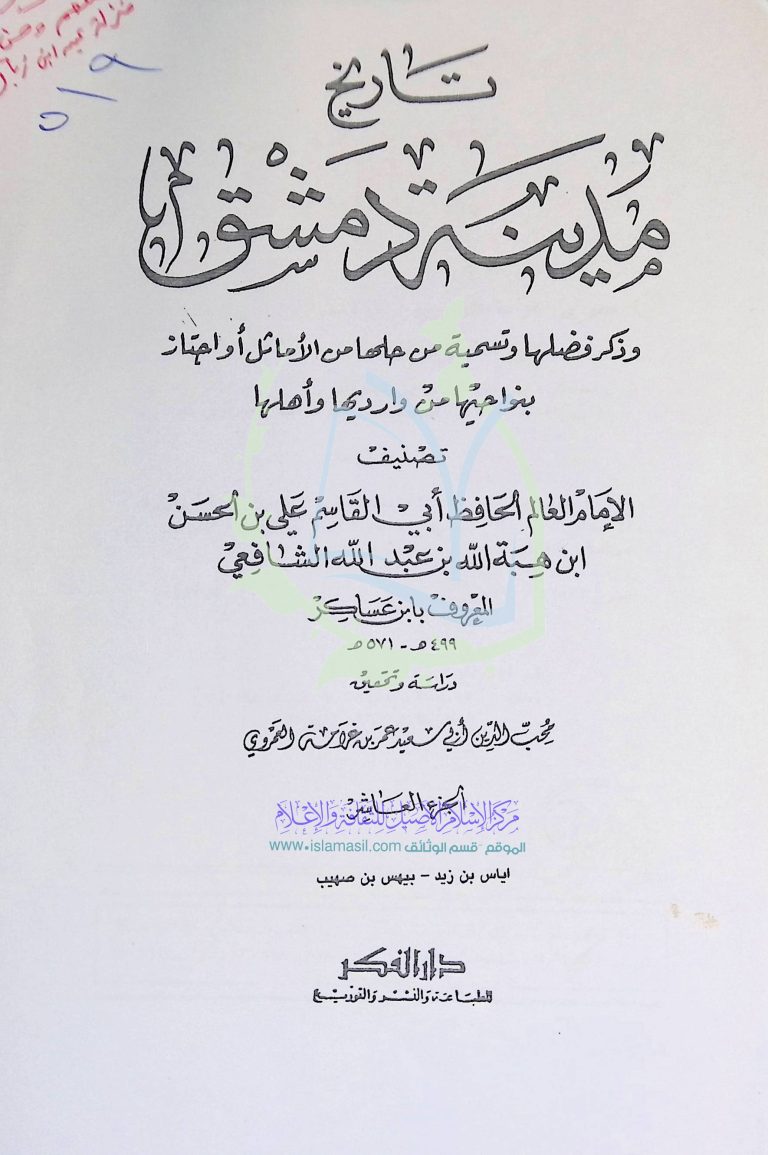 تاريخ
مدينة دمشق
وذكر فضلها وتسمية من حلها من الأماثل أو اجتاز
بنواحيها من وارديها وأهلها
تصنيف
الإمام العالم الحافظ أبي القاسم علي بن الحسن
ابن هبة الله بن عبد الله الشافعي
المعروف بابن عساكر
٤٩٩ هـ - ٥٧١ هـ
دراسة وتحقيق
محب الدين أبي سعيد عمر بن غرامة العمروي
الجزء العاشر
مركز الإسلام الأصيل للثقافة والإعلام
الموقع - قسم الوثائق www.islamasil.com
اياس بن زيد - بيهس بن صهيب
دار الفكر
للطباعة والنشر والتوزيع